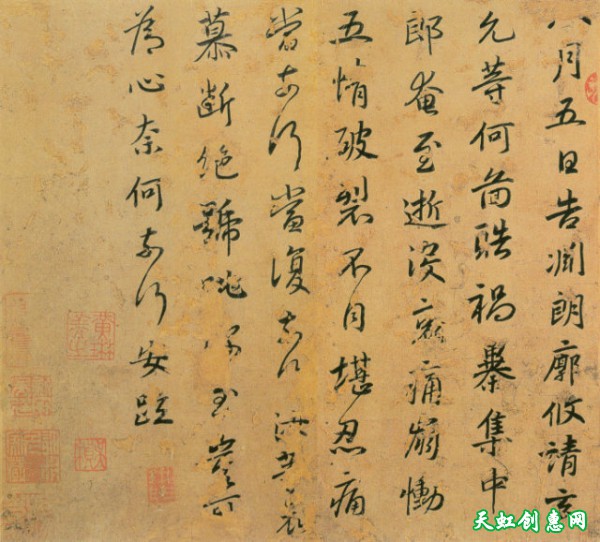 八月五日告淵朗廓攸靖玄
允等何圖酷禍暴集中
郎奄至逝沒哀痛崩慟
五情破裂不自堪忍痛
當奈何當復奈何汝等哀
慕斷絕號咷深至豈可
為心奈何奈何安疏
天虹创惠网